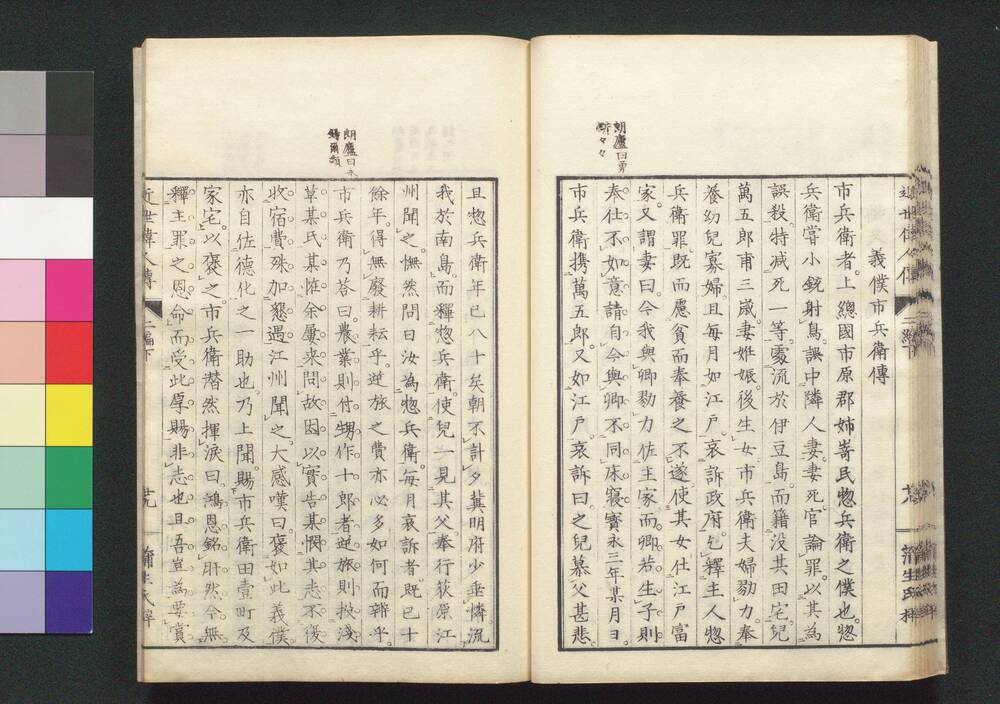 義僕市兵衛傳
市兵衛者。上總國市原郡姉嵜民惣兵衛之僕也。惣
兵衛嘗小銃射鳥。誤中隣人妻。妻死。官論罪。以其為
誤殺。特減死一等。處流於伊豆島。而籍没其田宅。兒
萬五郎甫三歲。妻姙娠。後生女。市兵衛夫婦勠力。奉
養幼兒寡婦。且每月如江戸。哀訴政府。乞釋主人惣
兵衛罪。既而慮貧而奉養之不遂。使其女仕江戸富
家。又謂妻曰。今我與卿勠力佐主家。而卿若生子。則
奉仕不如意。請自今與卿不同床寢。寶永三年某月日。
市兵衛携萬五郎。又如江戸。哀訴曰。之兒慕父甚悲。
朗廬曰
斷々々
且惣兵衛年已八十矣。朝不計夕。冀明府少垂憐。流
我於南島。而釋惣兵衛。使兒一見其父。奉行荻原江
州聞之。憮然問曰。汝為惣兵衛。每月哀訴者。既已十
餘年。得無廢耕耘乎。逆旅之費亦必多。如何而辨乎。
市兵衛乃荅曰。農業則付甥作十郎者。逆旅則投淺
草某氏。某恠余屢来問故。因以實告。某憫其志。不復
收宿費。殊加懇遇。江州聞之。大感嘆曰。褒如此義僕。
亦自佐德化之一助也。乃上聞。賜市兵衛田壹町及
家宅。以褒之。市兵衛潸然揮淚曰。鴻恩銘肝。然今無
釋主罪之恩命。而受此厚賜。非志也。且吾豈為要賞
朗廬曰
近世偉人傳
二編下
蒲生氏梓